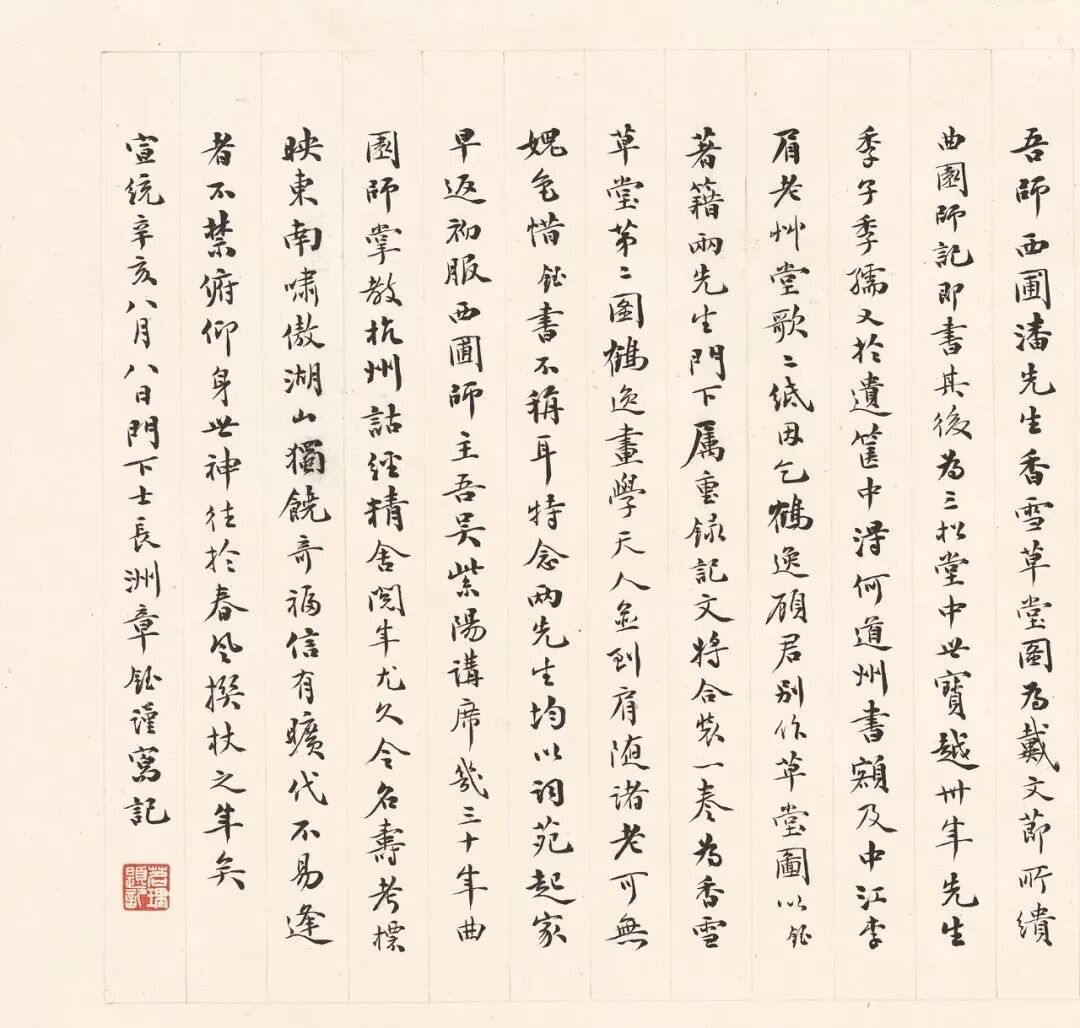 吾師西圃潘先生香雪草堂圖為戴文節所繢
曲園師記即書其後為三松堂中世寶越卅年先生
季子季孺又於遺箧中得何道州書額及中江李
眉老艸堂歌二紙因乞鶴逸顧君別作草堂圖以鈺
著籍兩先生門下属重録記文將合裝一卷為香雪
草堂第二圖鶴逸畫學天人並到肩随諸老可無
媿色惜鈺書不稱耳特念兩先生均以詞苑起家
早返初服西圃師主吾吴紫陽講席幾三十年曲
園師掌教杭州詁經精舍閲年尤久令名壽考標
映東南嘯傲湖山獨饒奇福信有曠代不易逢
者不禁俯仰身世神往於春風撰杖之年矣
宣統辛亥八月八日門下士長洲章鈺謹寫記
茗理題記